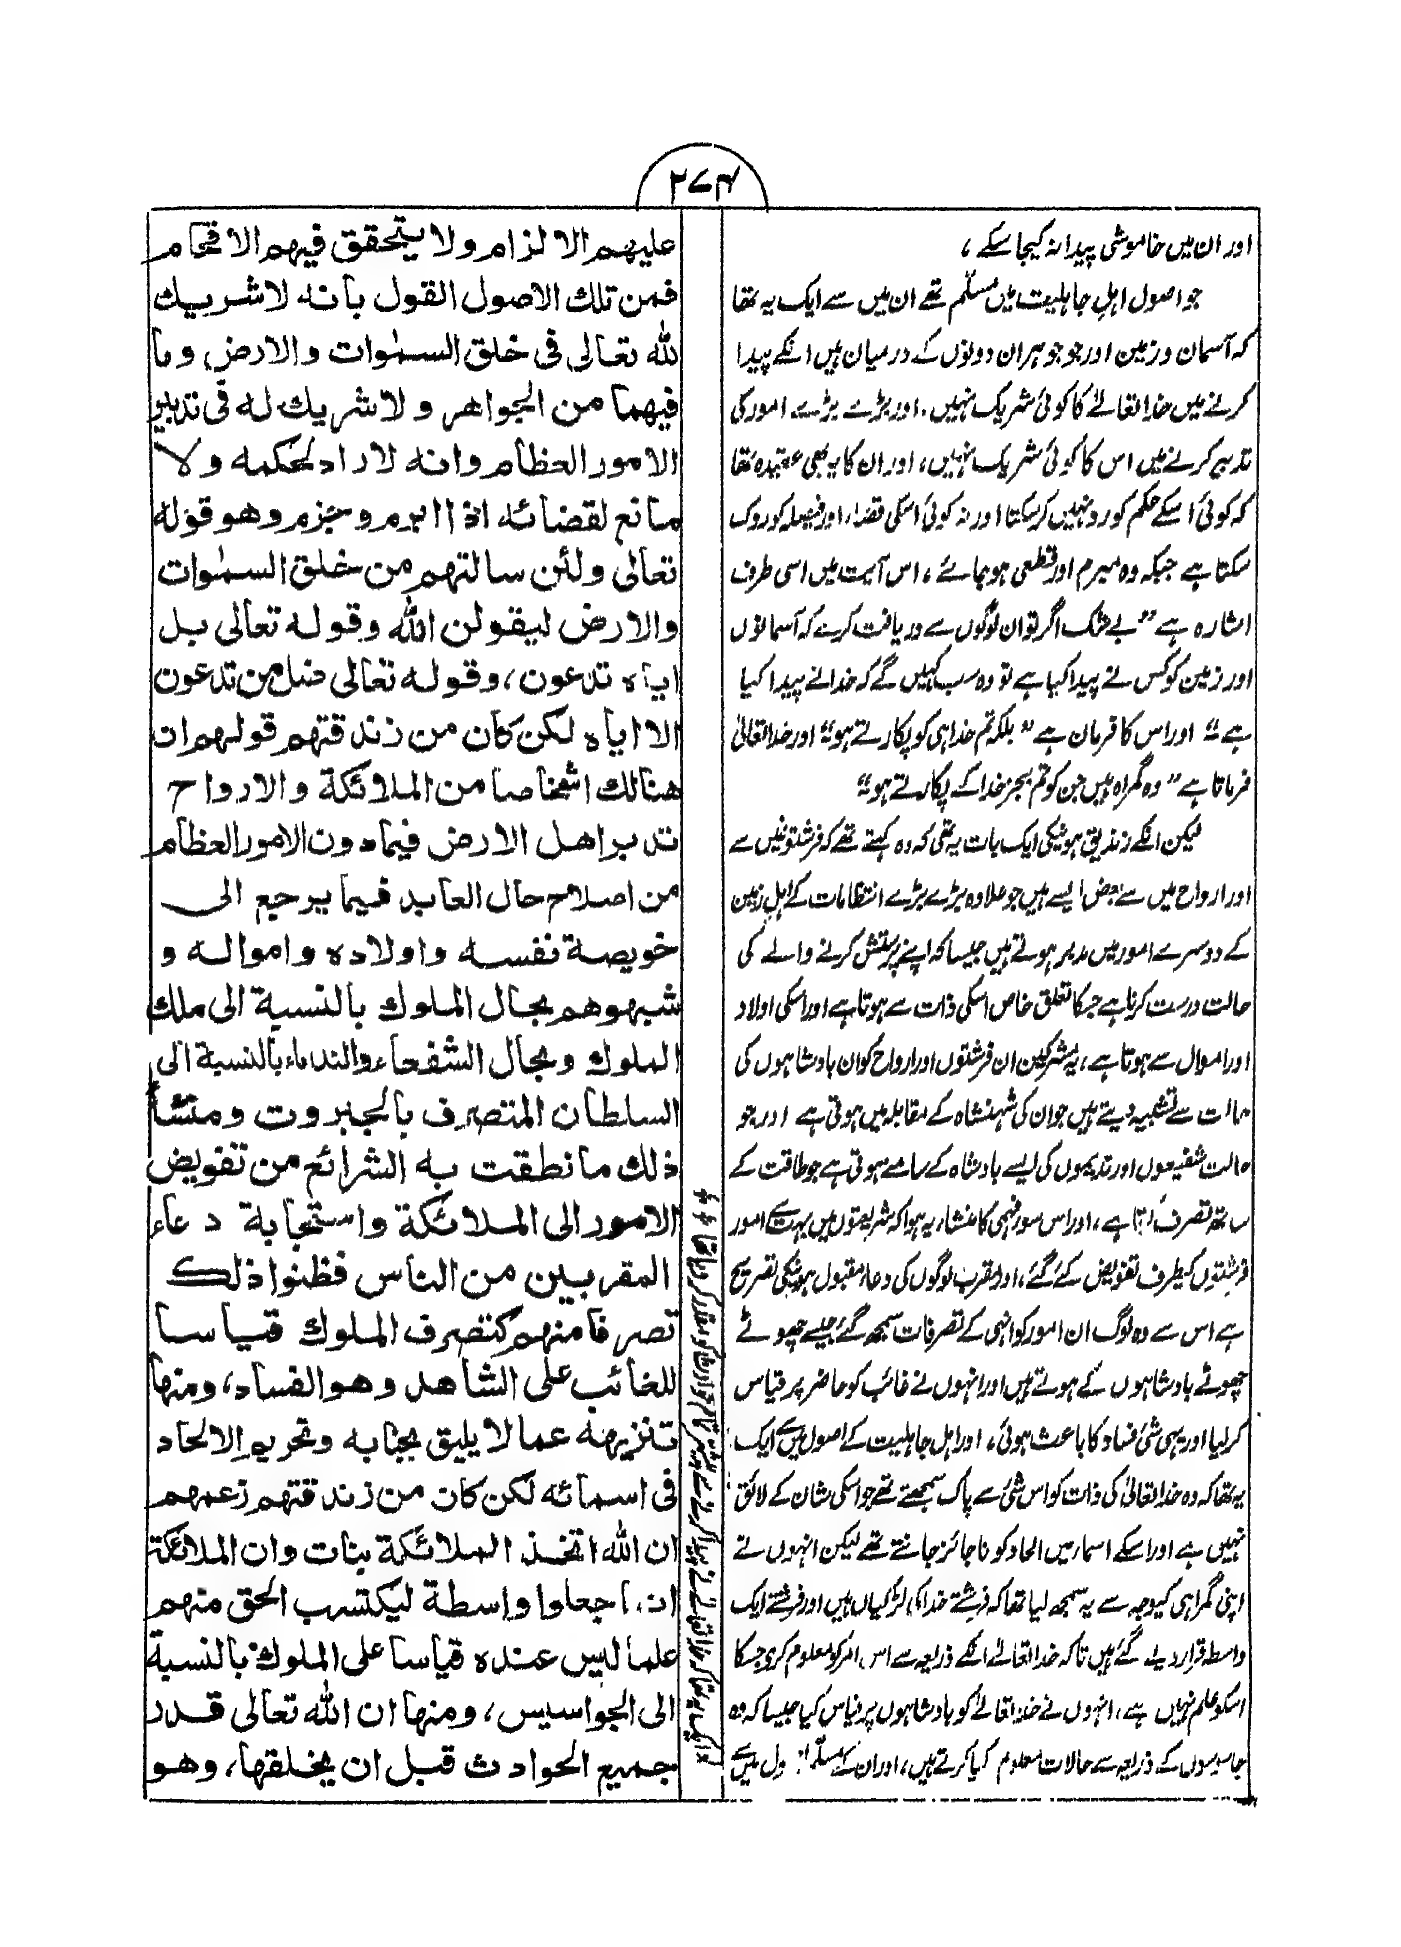 ۲۷۴
اور ان میں خاموشی پیدا نہ کیجا سکے ،
جو اصول اہلِ جاہلیت میں مسلّم تھے ان میں سے ایک یہ تھا
کہ آسمان و زمین اور جو جوہر ان دونوں کے درمیان ہیں انکے پیدا
کرنے میں خدا تعالےٰ کا کوئی شریک نہیں، اور بڑے بڑے امور کی
تدبیر کرنے میں اس کا کوئی شریک نہیں، اور ان کا یہ بھی عقیدہ تھا
کہ کوئی اسکے حکم کو رد نہیں کرسکتا اور نہ کوئی اسکی قضاء اور فیصلہ کو روک
سکتا ہے جبکہ وہ مبرم اور قطعی ہو جائے ، اس آیت میں اسی طرف
اشارہ ہے ”بے شک اگر تو ان لوگوں سے دریافت کرے کہ آسمانوں
اور زمین کو کس نے پیدا کیا ہے تو وہ سب کہیں گے کہ خدا نے پیدا کیا
ہے“ اور اس کا فرمان ہے ”بلکہ تم خدا ہی کو پکارتے ہو“ اور خدا تعالیٰ
فرماتا ہے ”وہ گمراہ ہیں جن کو تم بجز خدا کے پکارتے ہو“
لیکن انکے زندیق ہونیکی ایک بات یہ تھی کہ وہ کہتے تھے کہ فرشتونمیں سے
اور ارواح میں سے بعض ایسے ہیں جو علاوہ بڑے بڑے انتظامات کے اہلِ زمین
کے دوسرے امور میں مدبر ہوتے ہیں جیسا کہ اپنے پرستش کرنے والے کی
حالت درست کرنا ہے جسکا تعلق خاص اسکی ذات سے ہوتا ہے اور اسکی اولاد
اور اموال سے ہوتا ہے، یہ مشرکین ان فرشتوں اور ارواح کو ان بادشاہوں کی
حالت سے تشبیہ دیتے ہیں جو ان کی شہنشاہ کے مقابلہ میں ہوتی ہے اور جو
حالت شفیعوں اور ندیموں کی ایسے بادشاہ کے سامنے ہوتی ہے جو طاقت کے
ساتھ تصرف کرتا ہے، اور اس سوء فہمی کا منشاء یہ ہوا کہ شریعتوں میں بہت سے امور
فرشتوں کیطرف تفویض کئے گئے، اور مقرب لوگوں کی دعاء مقبول ہونیکی تصریح
ہے اس سے وہ لوگ ان امور کو انہی کے تصرفات سمجھ گئے جیسے چھوٹے
چھوٹے بادشاہوں کے ہوتے ہیں اور انہوں نے غائب کو حاضر پر قیاس
کر لیا اور یہی شئ فساد کا باعث ہوئی، اور اہل جاہلیت کے اصول میں سے ایک
یہ تھا کہ وہ خدا تعالیٰ کی ذات کو اس شئ سے پاک سمجھتے تھے جو اسکی شان کے لائق
نہیں ہے اور اسکے اسماء میں الحاد کو ناجائز جانتے تھے لیکن انہوں نے
اپنی گمراہی کیوجہ سے یہ سمجھ لیا تھا کہ فرشتے خدا کی لڑکیاں ہیں اور فرشتے ایک
واسطہ قرار دیے گئے ہیں تاکہ خدا تعالےٰ انکے ذریعہ سے اس امر کو معلوم کرے جسکا
اسکو علم نہیں ہے، انہوں نے خدا تعالےٰ کو بادشاہوں پر قیاس کیا جیسا کہ وہ
جاسوسوں کے ذریعہ سے حالات معلوم کیا کرتے ہیں، اور ان کے مسلّم میں سے
ایک یہ تھا کہ خدا تعالےٰ نے پیدا کرنے سے پیشتر تمام حوادثات کو مقدر کر دیا تھا
عليهم الالزام ولا يتحقق فيهم الافحام
فمن تلك الاصول القول بانه لا شريك
لله تعالى في خلق السمٰوات والارض وما
فيهما من الجواهر ولا شريك له في تدبير
الامور العظام وانه لا راد لحكمه ولا
مانع لقضائه اذا ابرم وجزم وهو قوله
تعالى ولئن سالتهم من خلق السمٰوات
والارض ليقولن الله وقوله تعالى بل
اياه تدعون، وقوله تعالى ضل من تدعون
الا اياه لكن كان من زندقتهم قولهم ان
هنالك اشخاصا من الملائكة والارواح
تدبر اهل الارض فيما دون الامور العظام
من اصلاح حال العابد فيما يرجع الى
خويصة نفسه واولاده وامواله و
شبهوهم بحال الملوك بالنسبة الى ملك
الملوك وبحال الشفعاء والندماء بالنسبة الى
السلطان المتصرف بالجبروت ومنشأ
ذلك ما نطقت به الشرائع من تفويض
الامور الى الملائكة واستجابة دعاء
المقربين من الناس فظنوا ذلك
تصرفا منهم كتصرف الملوك قياسا
للغائب على الشاهد وهو الفساد، ومنها
تنزيهه عما لا يليق بجنابه وتحريم الالحاد
في اسمائه لكن كان من زندقتهم زعمهم
ان الله اتخذ الملائكة بنات وان الملائكة
انما جعلوا واسطة ليكتسب الحق منهم
علما ليس عنده قياسا على الملوك بالنسبة
الى الجواسيس، ومنها ان الله تعالى قدر
جميع الحوادث قبل ان يخلقها، وهو